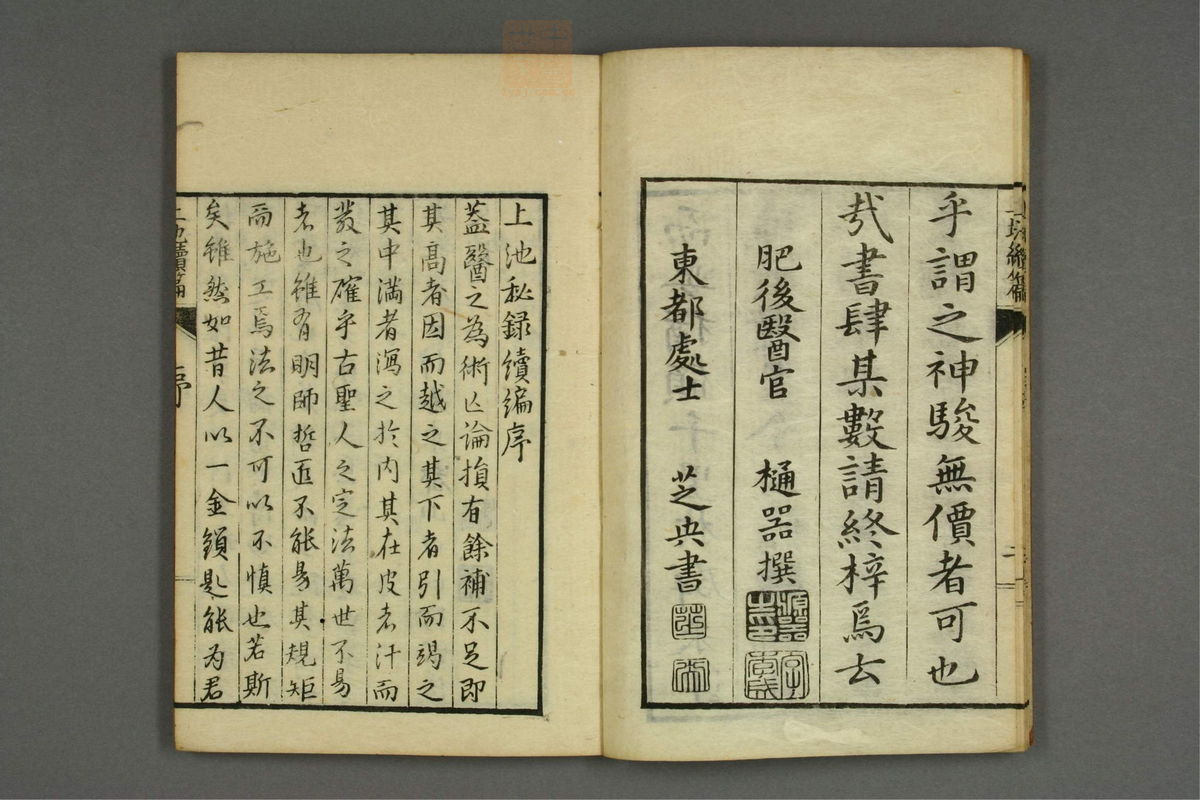 乎謂之神駿無價者可也
哉書肆某數請終梓焉云
肥後醫官　樋器撰
東都處士　芝典書
上池秘録續編序
蓋醫之為術亡論損有餘補不足即
其高者因而越之其下者引而竭之
其中満者瀉之於内其在皮者汗而
發之確乎古聖人之定法萬世不易
者也雖有明師哲匠不能易其規矩
而施工焉法之不可以不慎也若斯
矣雖然如昔人以一金鎖匙能为君
續篇
序